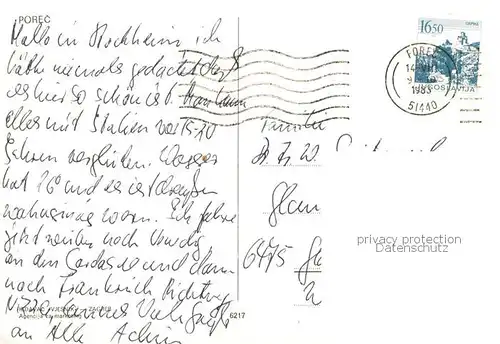 POREČ
Hallo in Stockheim ich
hätte niemals gedacht daß
es hier so schön ist. Man kann
alles mit Italien vor 15-20
Jahren vergleichen. Wasser
hat 26° und es ist draußen
wahnsinnig warm. Ich fahre
jetzt weiter nach Venedig,
an den Gardasee und dann
nach Frankreich Richtung
Nizza. Viele Grüße
an Alle Achim
VJESNIK ZAGREB
6217
16.50
JUGOSLAVIJA
POREČ
1983
51440
Familie
Dr. W.
Glau
6475
privacy protection
Datenschutz